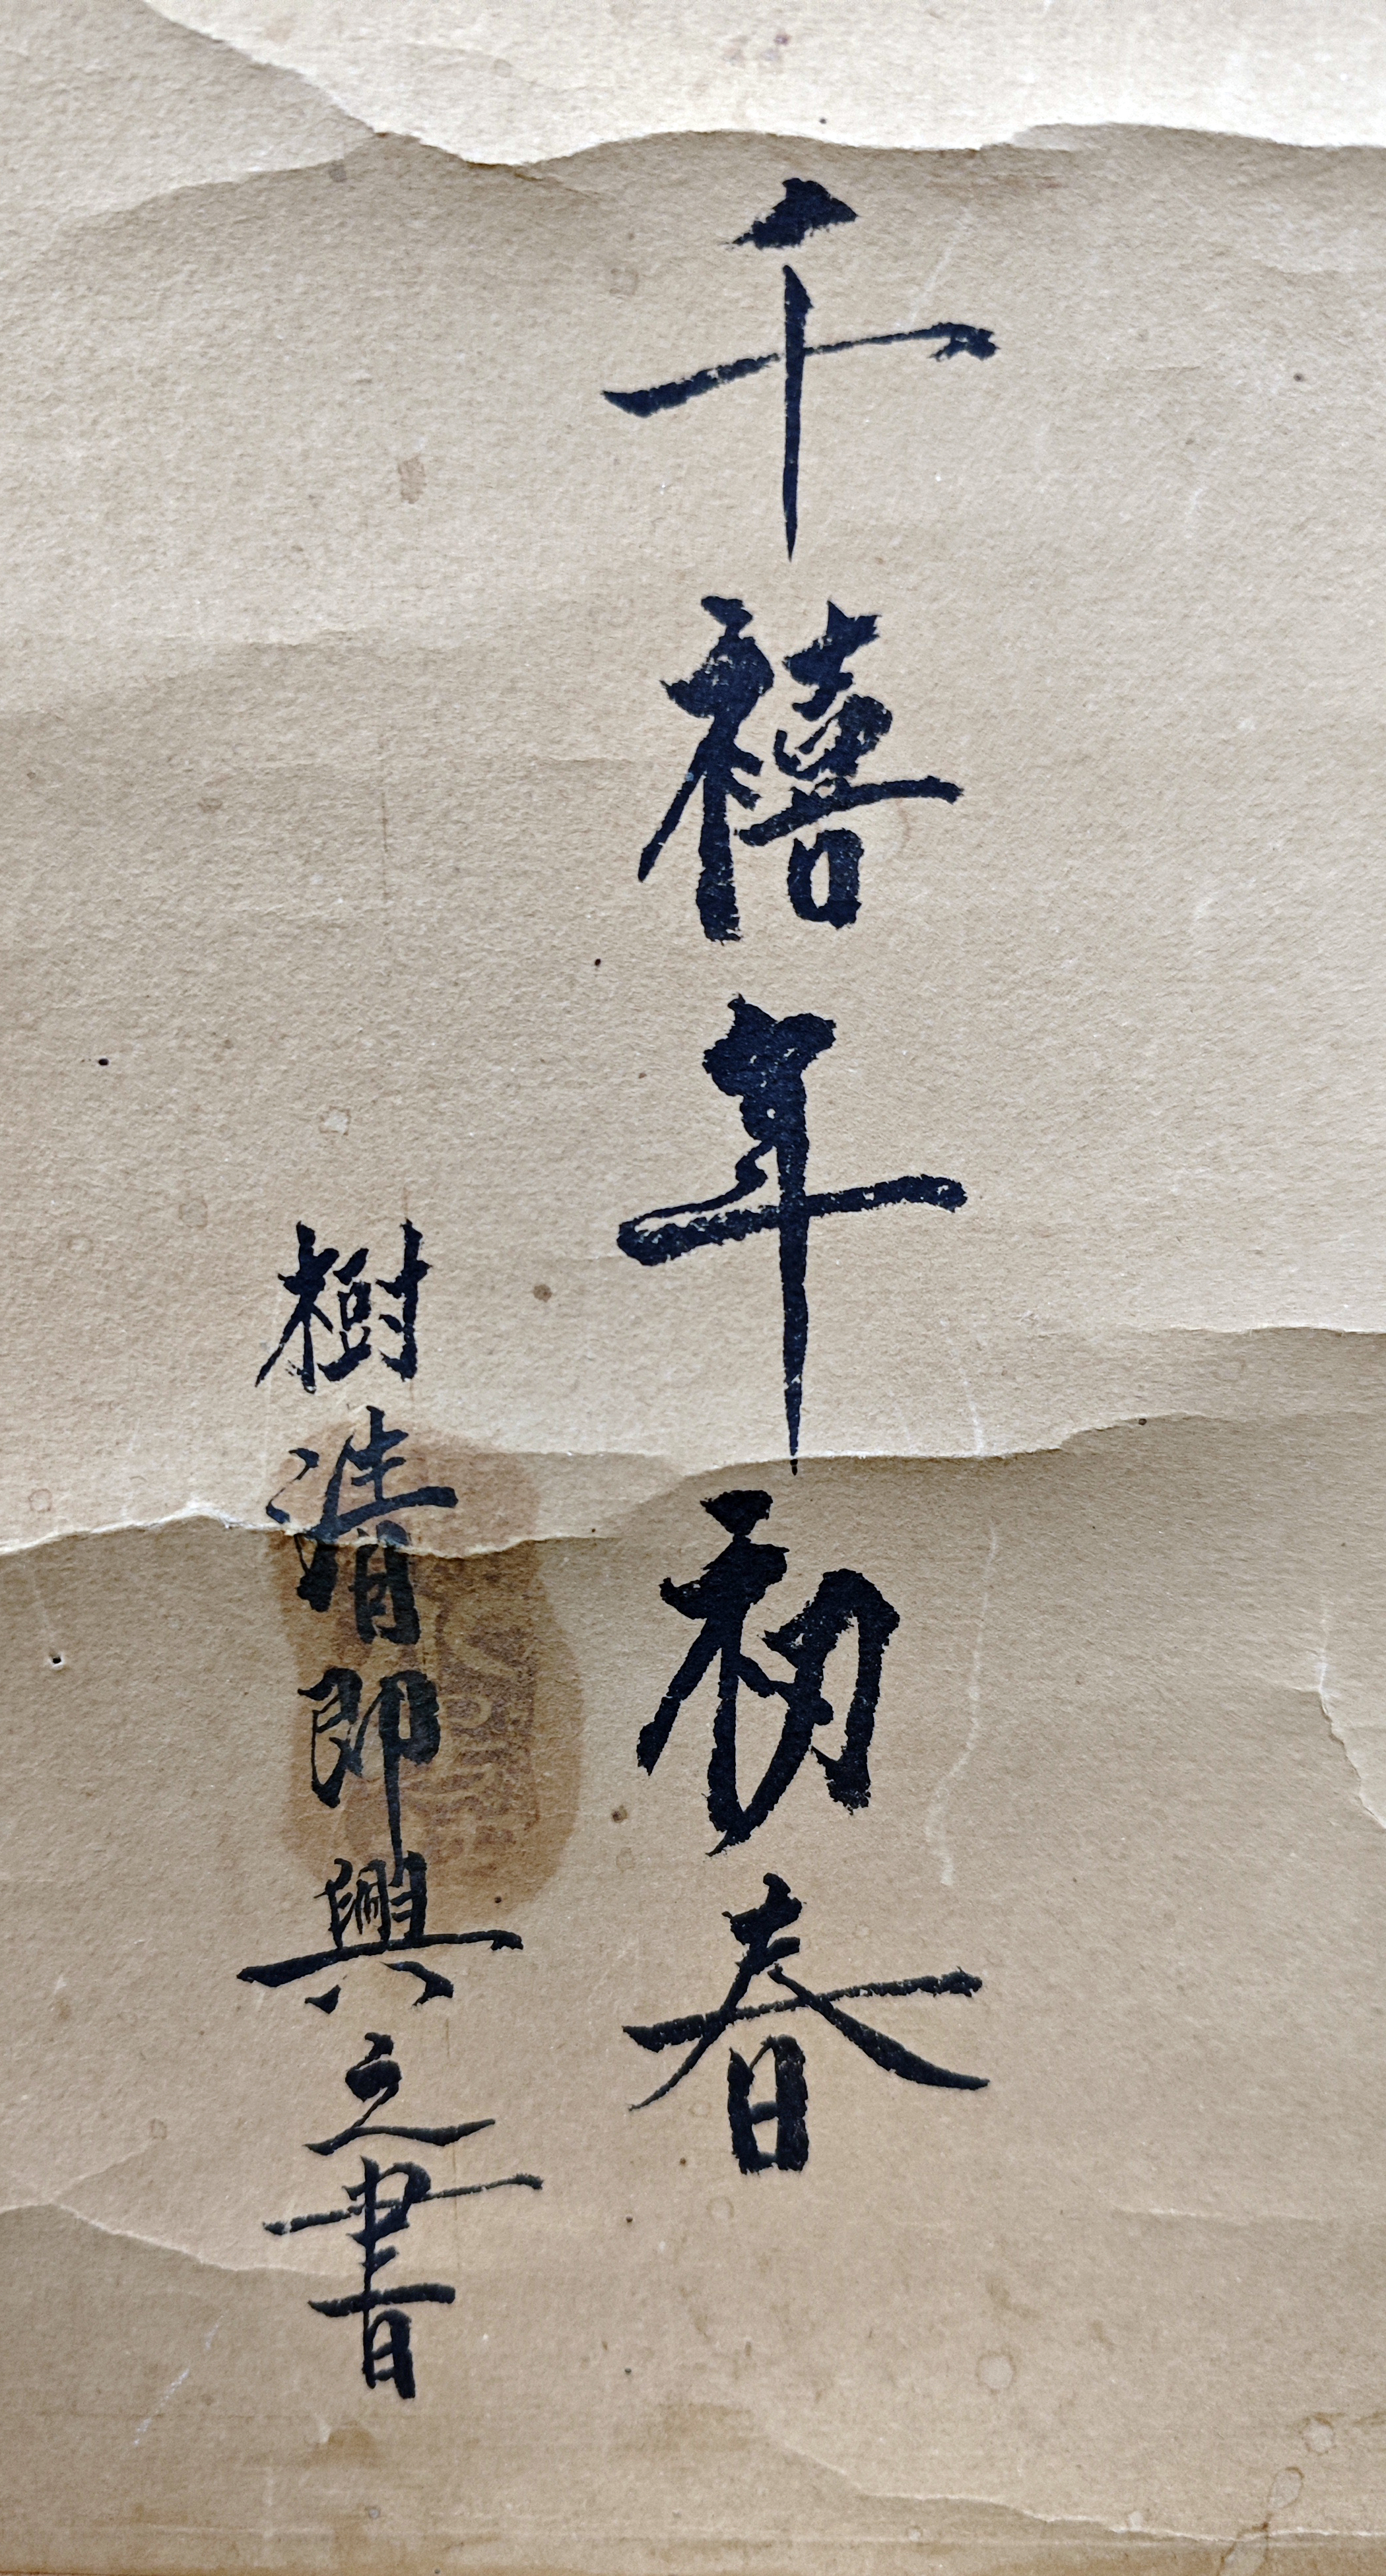 千禧年初春
樹清即興之書